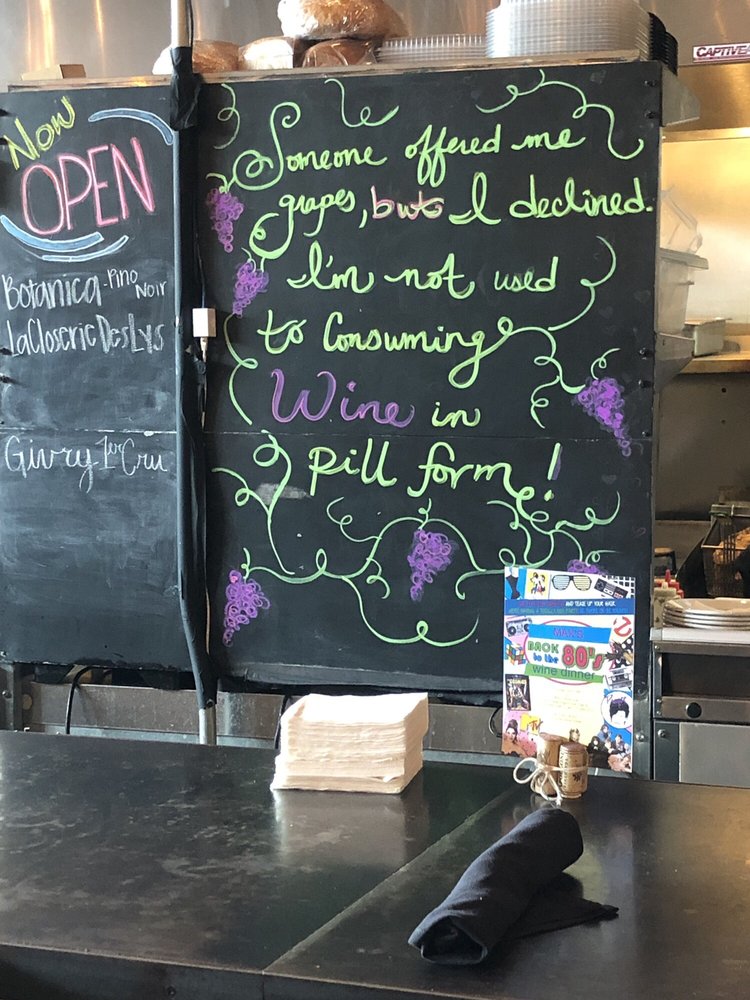 CAPTIVE
Now
OPEN
Botanica - Pino
Noir
LaCloserie DesLys
Givry 1er Cru
Someone offered me
grapes, but I declined.
I'm not used
to Consuming
Wine in
pill form!
AND TEASE UP YOUR HAIR.
BACK
to the 80's
wine dinner